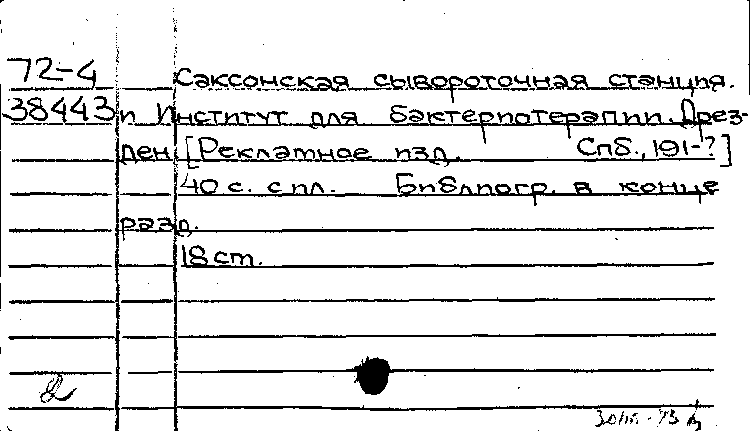 72-4 Саксонская сывороточная станция.
38443 и Институт для бактериотерапии. Дрез-
ден. [Рекламное изд. Спб., 191-?]
40 с. с ил. Библиогр. в конце
разд.
18 см.